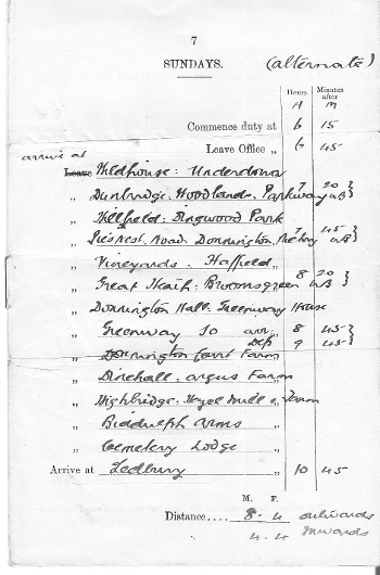 7
SUNDAYS. (alternate)
Hours Minutes after
A M
Commence duty at 6 15
Leave Office „ 6 45
arrive at
Leave Wildhouse: Underdown
„ Dunbridge. Woodlands. Parkway 7 20 }
„ Hillfield: Ringwood Park
„ Pies Nest. Road. Donnington. Rectory 7 45 }
„ Vineyards. Haffield „
„ Great Heath. Broomsgreen 8 20 }
„ Donnington Hall. Greenway House
„ Greenway So arr: 8 45 }
Dep 9 45 }
„ Donnington Court Farm
„ Dinehall. Argus Farm
„ Highbridge. Hazel Mill & Farm
„ Biddulph Arms „
„ Cemetery Lodge „
Arrive at Ledbury „ 10 45
M. F.
Distance.... 8. 4 outwards
4. 4 Inwards